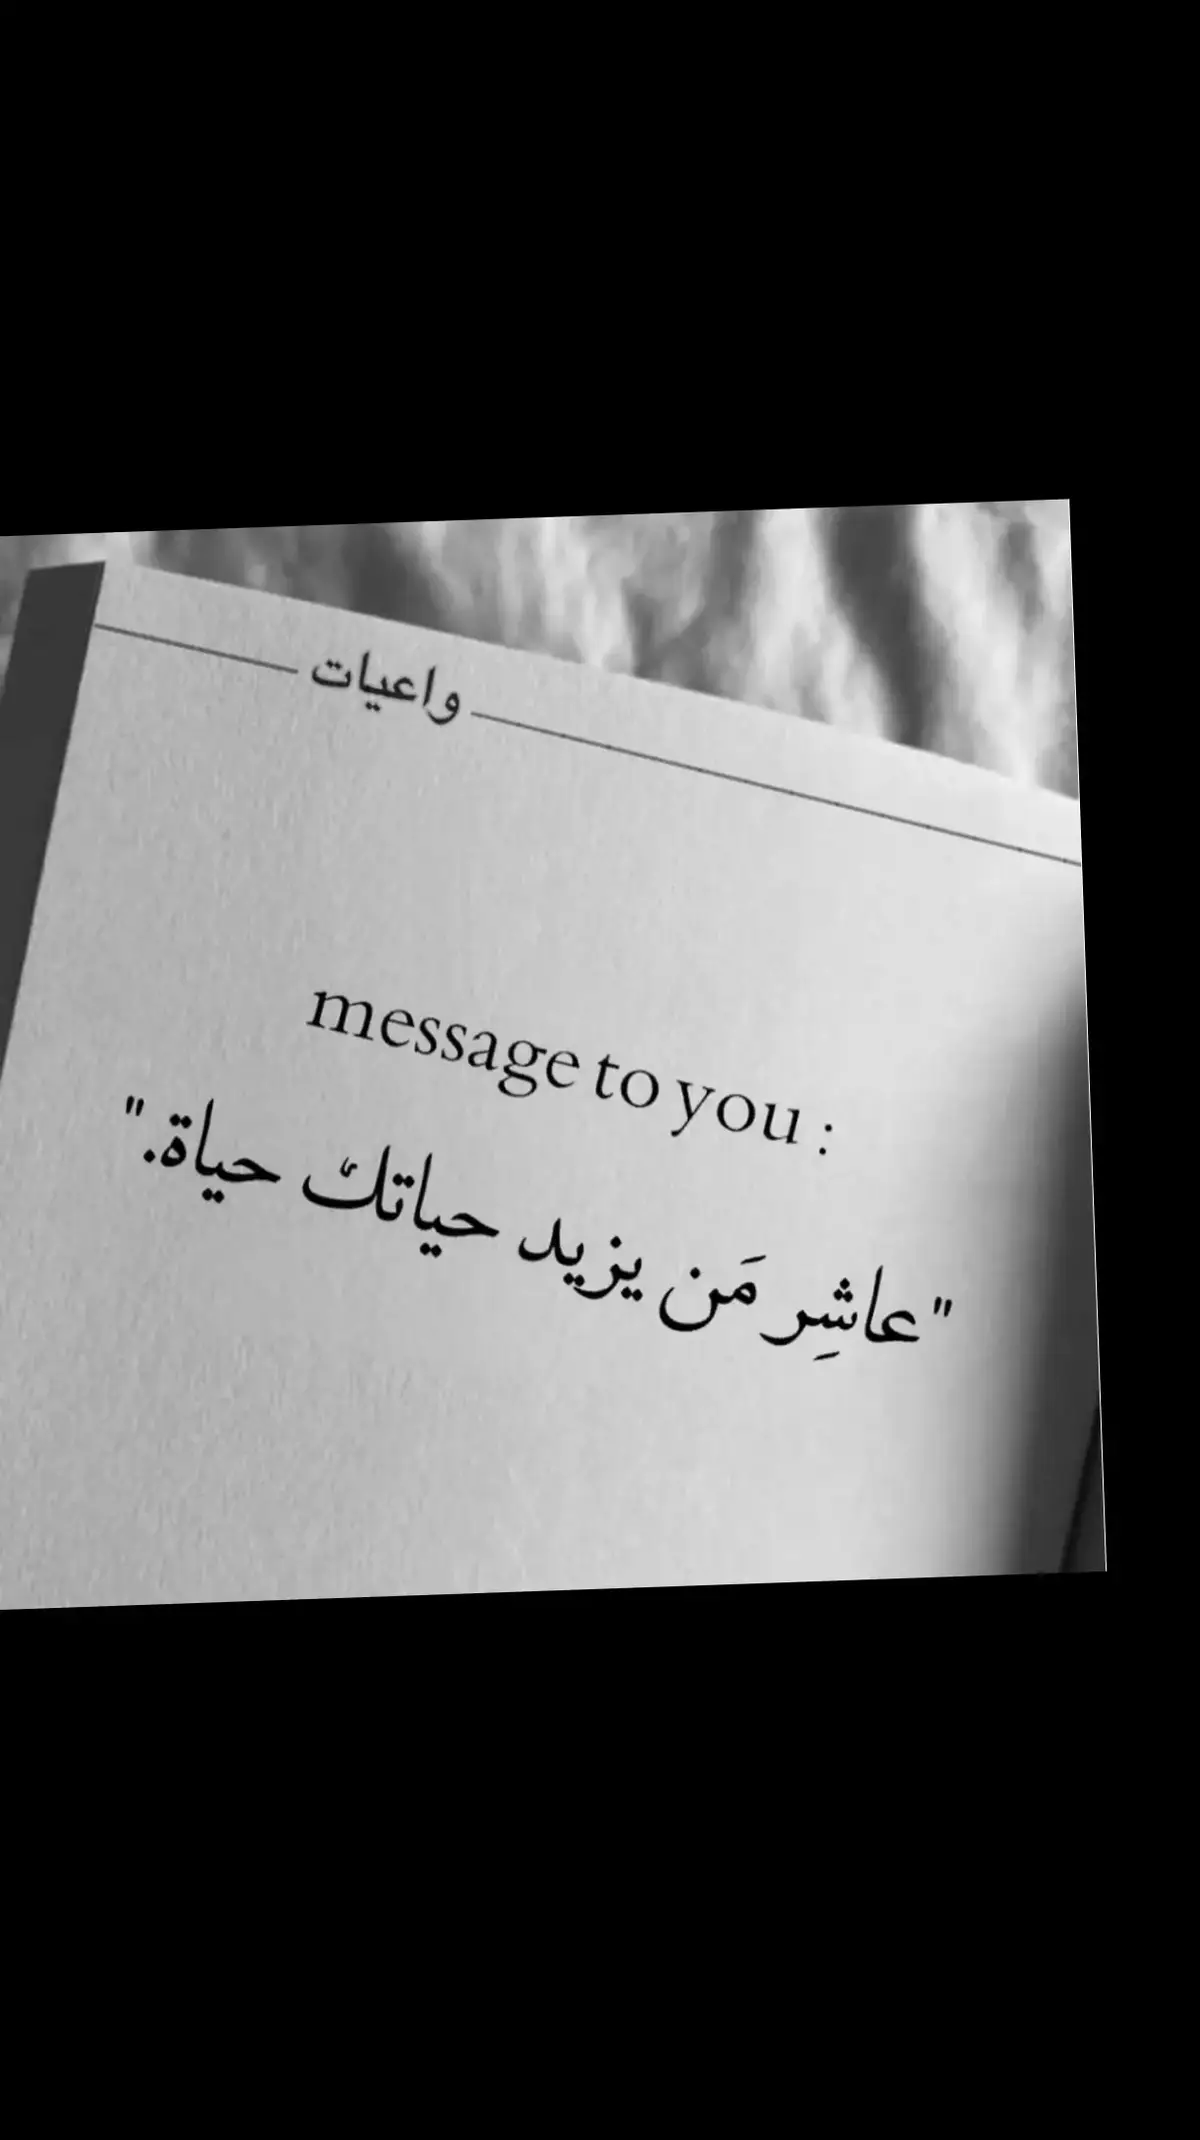 واعيات
message to you :
"عاشِر مَن يزيد حياتك حياة."